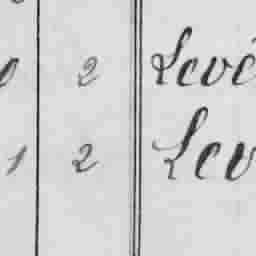 0 2 Levé
1 2 Lev